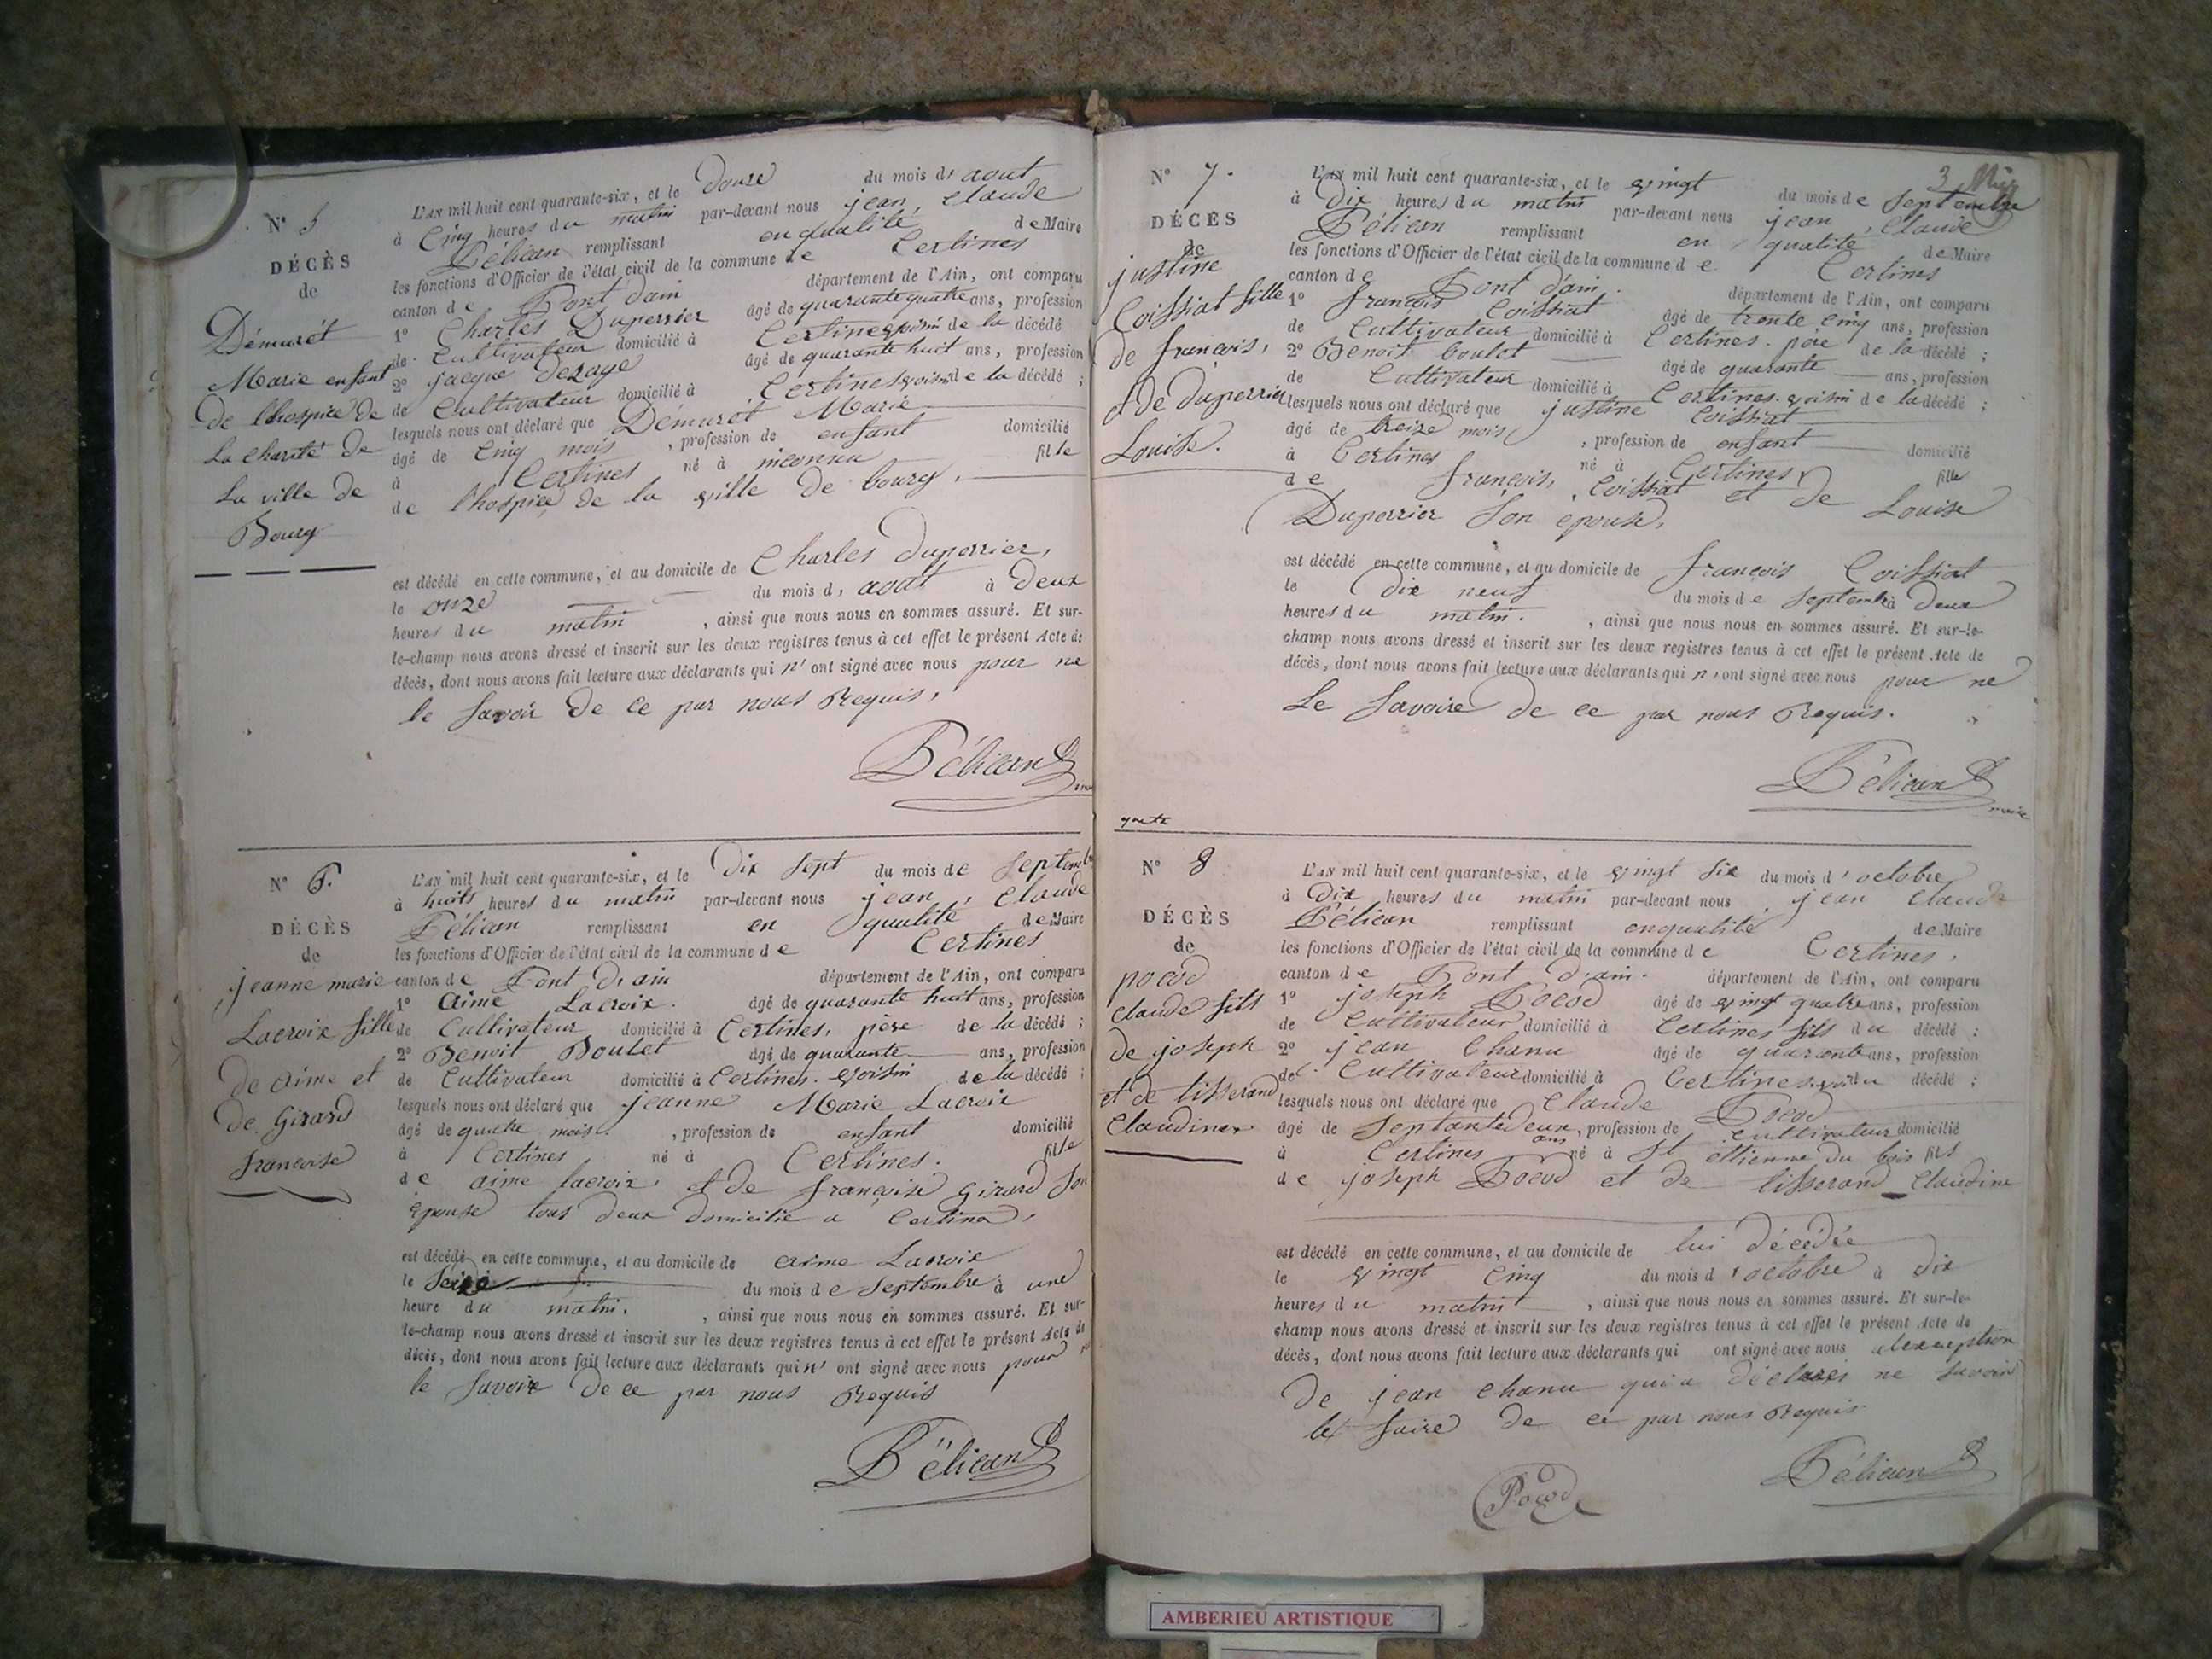 N° 5
DÉCÈS
de
Démurét
Marie enfant
de l'hospice de
La charité de
La ville de
Bourg
L'AN mil huit cent quarante-six, et le Douze du mois d' aout
à Cinq heures du matin par-devant nous jean, Claude
Pélican remplissant en qualité de Maire
les fonctions d'Officier de l'état civil de la commune de Certines
canton de Pont d'ain département de l'Ain, ont comparu
1° Charles Duperrier âgé de quarante quatre ans, profession
de Cultivateur domicilié à Certines voisin de la décédé
2° jacque Deraye âgé de quarante huit ans, profession
de Cultivateur domicilié à Certines voisin de la décédé ;
lesquels nous ont déclaré que Démurét Marie
âgé de Cinq mois , profession de enfant domicilié
à Certines né à inconnu fille
de l'hospice de la ville de bourg.
est décédé en cette commune, et au domicile de Charles duperrier,
le onze du mois d, aout à Deux
heures du matin , ainsi que nous nous en sommes assuré. Et sur-
le-champ nous avons dressé et inscrit sur les deux registres tenus à cet effet le présent Acte de
décès, dont nous avons fait lecture aux déclarants qui n' ont signé avec nous pour ne
le Savoir de ce par nous Requis,
Pélican
N° 6.
DÉCÈS
de
jeanne marie
Lacroix fille
de aimé et
de Girard
francoise
L'AN mil huit cent quarante-six, et le Dix Sept du mois de Septemb
à huits heures du matin par-devant nous jean, Claude
Pélican remplissant en qualité de Maire
les fonctions d'Officier de l'état civil de la commune de Certines
canton de Pont d'ain département de l'Ain, ont comparu
1° Aimé Lacroix. âgé de quarante huit ans, profession
de Cultivateur domicilié à Certines, père de la décédé ;
2° Benoit Boulet âgé de quarante ans, profession
de Cultivateur domicilié à Certines. voisin de la décédé ;
lesquels nous ont déclaré que jeanne Marie Lacroix
âgé de quatre mois. , profession de enfant domicilié
à Certines né à Certines. fille
de aimé lacroix, et de françoise Girard Son
épouse tous deux domicilié a Certines,
est décédé en cette commune, et au domicile de aimé Lacroix
le Seize du mois de Septembre à une
heure du matin. , ainsi que nous nous en sommes assuré. Et sur-
le-champ nous avons dressé et inscrit sur les deux registres tenus à cet effet le présent Acte de
décès, dont nous avons fait lecture aux déclarants qui n' ont signé avec nous pour
le Savoir de ce par nous Requis
Pélican
3
N° 7.
DÉCÈS
de
justine
Coissiat fille
de françois,
et de duperrier
Louise.
L'AN mil huit cent quarante-six, et le vingt du mois de Septembre
à Dix heures du matin par-devant nous jean, Claude
Pélican remplissant en qualité de Maire
les fonctions d'Officier de l'état civil de la commune de Certines
canton de Pont d'ain. département de l'Ain, ont comparu
1° françois Coissiat âgé de trente cinq ans, profession
de Cultivateur domicilié à Certines. père de la décédé ;
2° Benoit boulet âgé de quarante ans, profession
de Cultivateur domicilié à Certines. voisin de la décédé ;
lesquels nous ont déclaré que justine Coissiat
âgé de treize mois , profession de enfant domicilié
à Certines né à Certines fille
de françois, Coissiat et de Louise
Duperrier Son epouse,
est décédé en cette commune, et au domicile de françois Coissiat
le dix neuf du mois de Septembre à Deux
heures du matin. , ainsi que nous nous en sommes assuré. Et sur-le-
champ nous avons dressé et inscrit sur les deux registres tenus à cet effet le présent Acte de
décès, dont nous avons fait lecture aux déclarants qui n, ont signé avec nous pour ne
Le Savoire de ce par nous Requis.
Pélican
maire
N° 8
DÉCÈS
de
pocod
claude fils
de joseph
et de tisserand
Claudine
L'AN mil huit cent quarante-six, et le vingt Six du mois d' octobre
à Dix heures du matin par-devant nous, jean Claude
Pélican remplissant en qualité de Maire
les fonctions d'Officier de l'état civil de la commune de Certines,
canton de Pont d'ain. département de l'Ain, ont comparu
1° joseph Pocod âgé de vingt quatre ans, profession
de Cultivateur domicilié à Certines fils du décédé ;
2° jean Chanu âgé de quarante ans, profession
de Cultivateur domicilié à Certines. du décédé ;
lesquels nous ont déclaré que Claude Pocod
âgé de Septante Deux ans , profession de cultivateur domicilié
à Certines né à St ettienne du bois fils
de joseph Pocod et de tisserand Claudine
est décédé en cette commune, et au domicile de lui décédée
le vingt Cinq du mois d' octobre à dix
heures du matin , ainsi que nous nous en sommes assuré. Et sur-le-
champ nous avons dressé et inscrit sur les deux registres tenus à cet effet le présent Acte de
décès, dont nous avons fait lecture aux déclarants qui ont signé avec nous alexeption
De jean chanu qui a déclarer ne Savoir
le faire de ce par nous Requis
Pélican
Pocod
AMBERIEU ARTISTIQUE